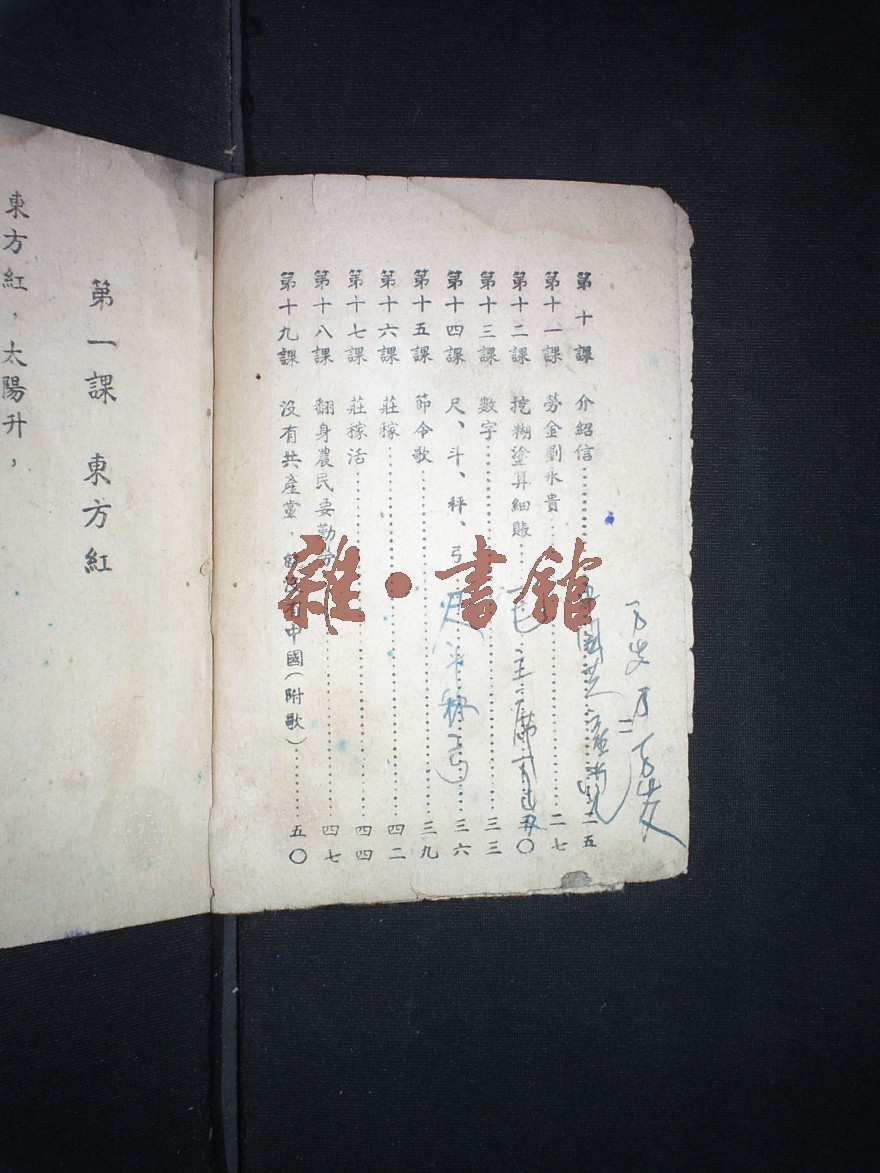 第十課 介紹信……二五
第十一課 勞金劉永貴……二七
第十二課 挖糊塗算細賬……三〇
第十三課 數字……三三
第十四課 尺、斗、秤、弓……三六
第十五課 節令歌……三九
第十六課 莊稼……四二
第十七課 莊稼活……四四
第十八課 翻身農民要勤勞……四七
第十九課 沒有共產黨，就沒有中國(附歌)……五〇
毛主席
尺斗秤弓
第一課 東方紅
東方紅，太陽升，
雜·書館